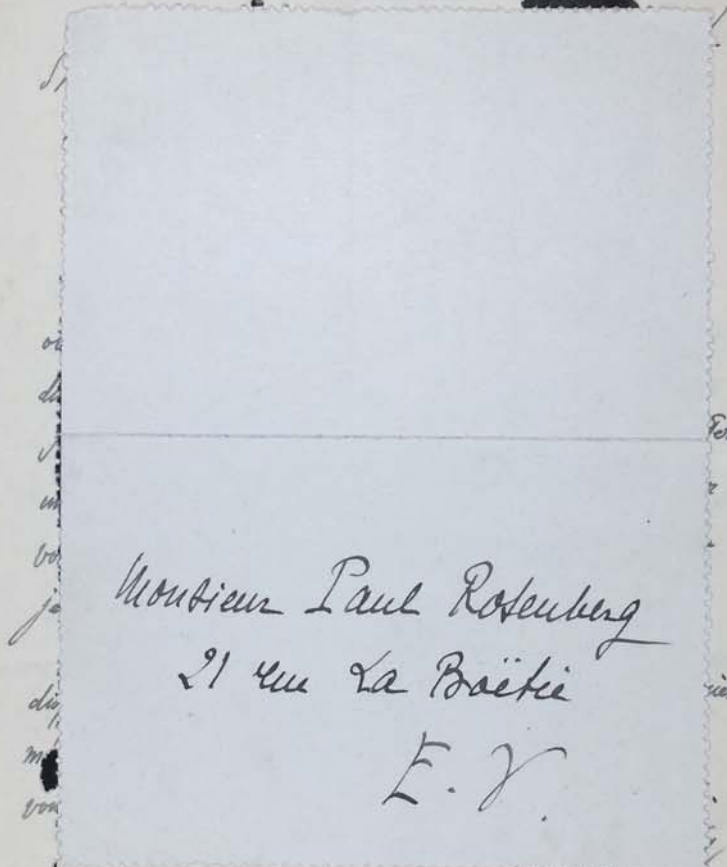 Monsieur Paul Rosenberg
21 rue La Boëtie
E. V.